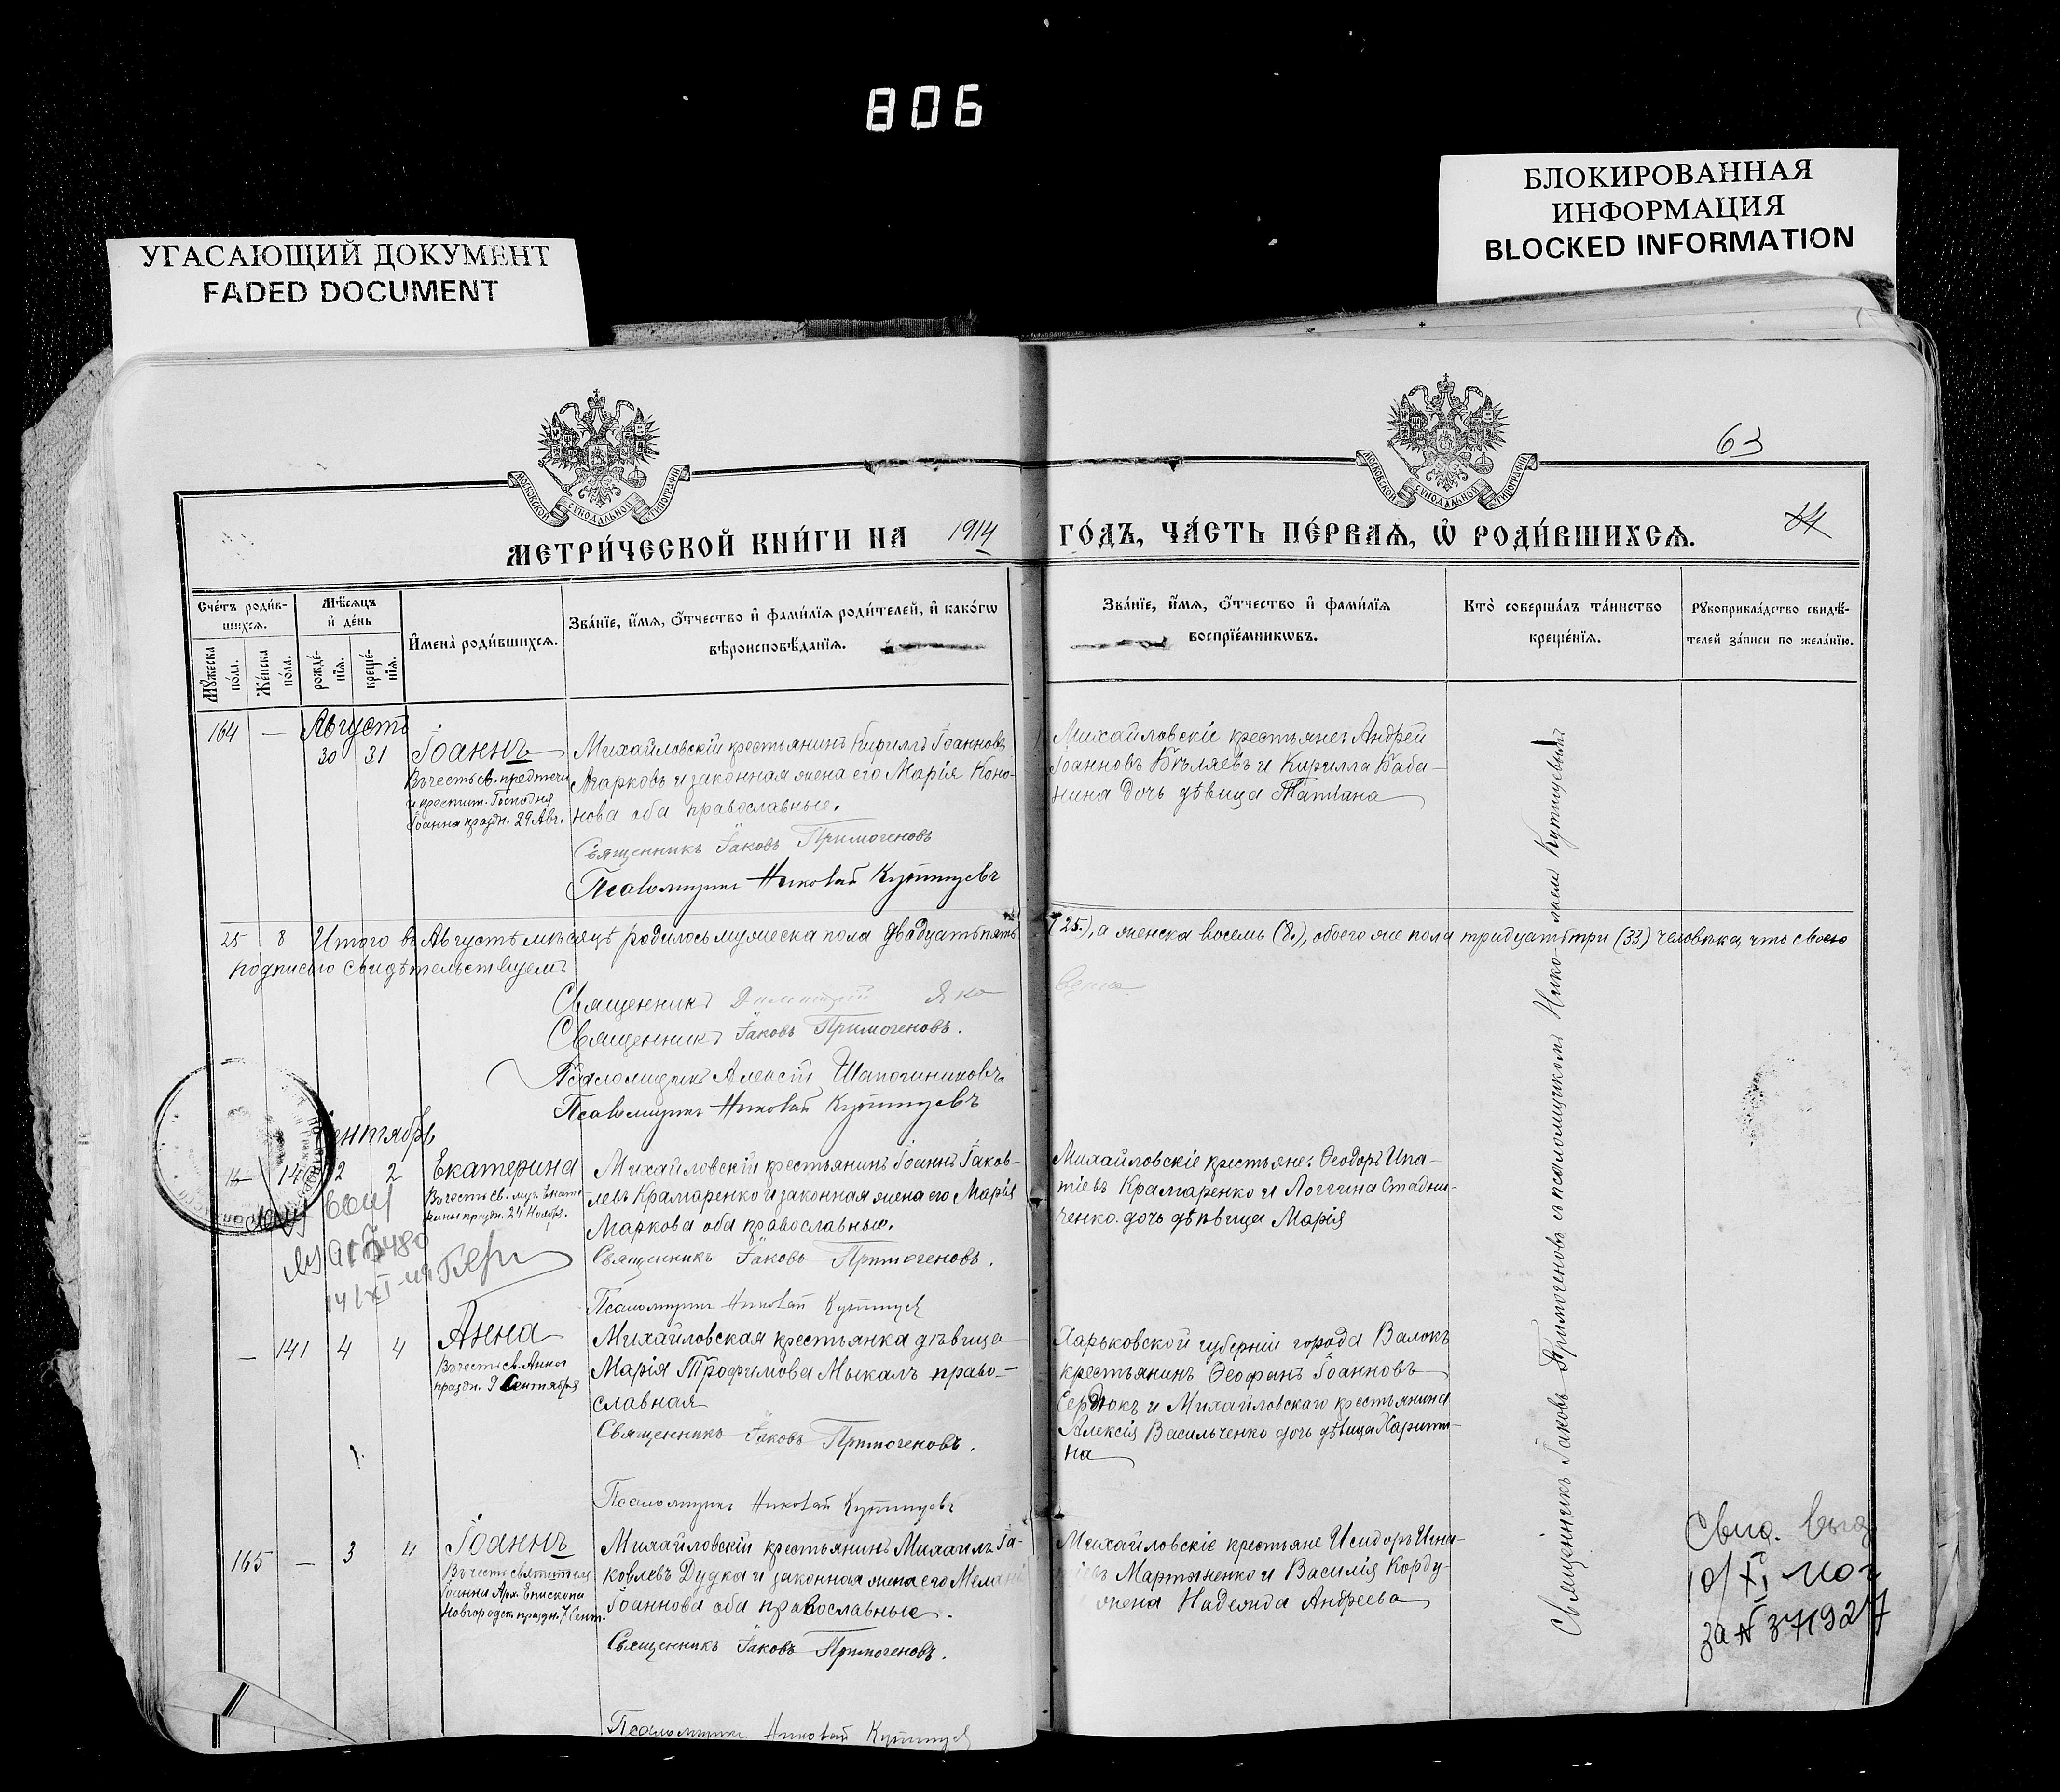 806
УГАСАЮЩИЙ ДОКУМЕНТ
FADED DOCUMENT
БЛОКИРОВАННАЯ
ИНФОРМАЦИЯ
BLOCKED INFORMATION
63
МОСКОВСКОЙ СѴНОДАЛЬНОЙ ТИПОГРАФІИ
МОСКОВСКОЙ СѴНОДАЛЬНОЙ ТИПОГРАФІИ
МЕТРИ́ЧЕСКОЙ КНИ́ГИ НА 1914 ГО́ДЪ, ЧА́СТЬ ПЕ́РВАѦ, Ѡ҆ РОДИ́ВШИХСѦ.
Сче́тъ роди́в-
шихсѧ.
Мꙋ́жеска по́ла.
Же́нска по́ла.
Мѣ́сѧцъ
и҆ де́нь
рожде́-
нїѧ.
креще́-
нїѧ.
И҆мена̀ роди́вшихсѧ.
Зва́нїе, и҆́мѧ, ѻ҆́тчество и҆ фами́лїѧ роди́телей, и҆ како́гѡ
вѣроисповѣ́данїѧ.
Зва́нїе, и҆́мѧ, ѻ҆́тчество и҆ фами́лїѧ
воспрїе́мникѡвъ.
Кто̀ соверша́лъ та́инство
креще́нїѧ.
Рꙋкоприкла́дство свидѣ́-
телей за́писи по жела́нїю.
164 — Августъ
30 31 Іоаннъ
Въ честь св. предтечи
и крестит. Господня
Іоанна праздн. 29 Авг.
Михайловскій крестьянинъ Кириллъ Іоанновъ
Агарковъ и законная жена его Марія Коно-
нова оба православные.
Священникъ Іаковъ Примогеновъ
Псаломщикъ Николай
Михайловскіе крестьяне: Андрей
Іоанновъ Бѣляевъ и Кирилла Каба-
нина дочь дѣвица Татіана
25 8 Итого въ Августѣ мѣсяцѣ родилось мужеска пола двадцать пять (25), а женска восемь (8.), обоего же пола тридцать три (33) человѣка, что своею
подписью свидѣтельствуемъ
Священникъ Димитрій Яковенко
Священникъ Іаковъ Примогеновъ.
Псаломщикъ Алексій Шапошниковъ
Псаломщикъ Николай
Сентябрь
140 2 2 Екатерина
Въ честь св. муч. Екате-
рины праздн. 24 Ноября.
Михайловскій крестьянинъ Іоаннъ Іаков-
левъ Крамаренко и законная жена его Марія
Маркова оба православные.
Священникъ Іаковъ Примогеновъ.
Псаломщикъ Николай
Михайловскіе крестьяне: Ѳеодоръ Ипа-
тіевъ Крамаренко и Логгина Стадни-
ченко дочь дѣвица Марія
— 141 4 4 Анна
Въ честь св. Анны
праздн. 9 Сентября
Михайловская крестьянка дѣвица
Марія Трофимова Мыкалъ право-
славная
Священникъ Іаковъ Примогеновъ.
Псаломщикъ Николай
Харьковской губерніи города Валокъ
крестьянинъ Ѳеофанъ Іоанновъ
Сердюкъ и Михайловскаго крестьянина
Алексія Васильченко дочь дѣвица Харити-
на
165 — 3 4 Іоаннъ
Въ честь святителя
Іоанна Арх. Епископа
Новгородск. праздн. 7 Сент.
Михайловскій крестьянинъ Михаилъ Іа-
ковлевъ Дудка и законная жена его
Іоаннова оба православные.
Священникъ Іаковъ Примогеновъ.
Псаломщикъ Николай
Михайловскіе крестьяне Исидоръ
Мартыненко и Василія Корду-
жена Надежда Андреева
Священникъ Іаковъ Примогеновъ съ псаломщикомъ Николаемъ
Свид. выд.
за № 371927